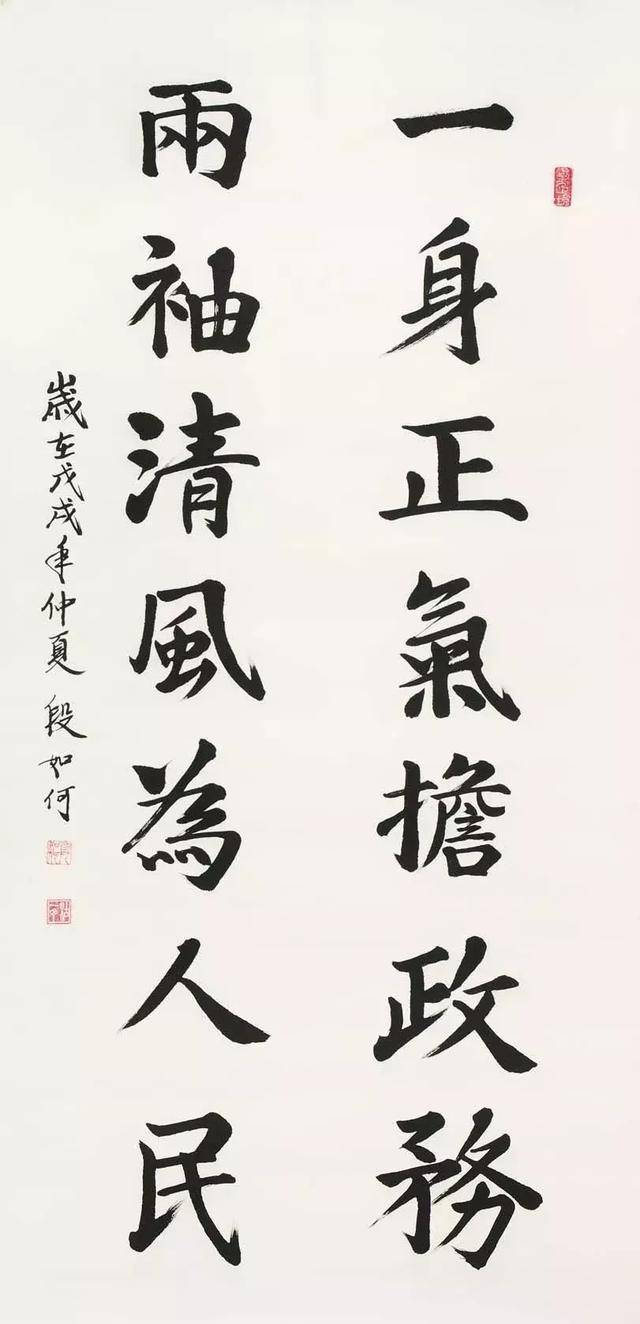 一身正氣擔政務
兩袖清風為人民
歲在戊戌年仲夏 段如何